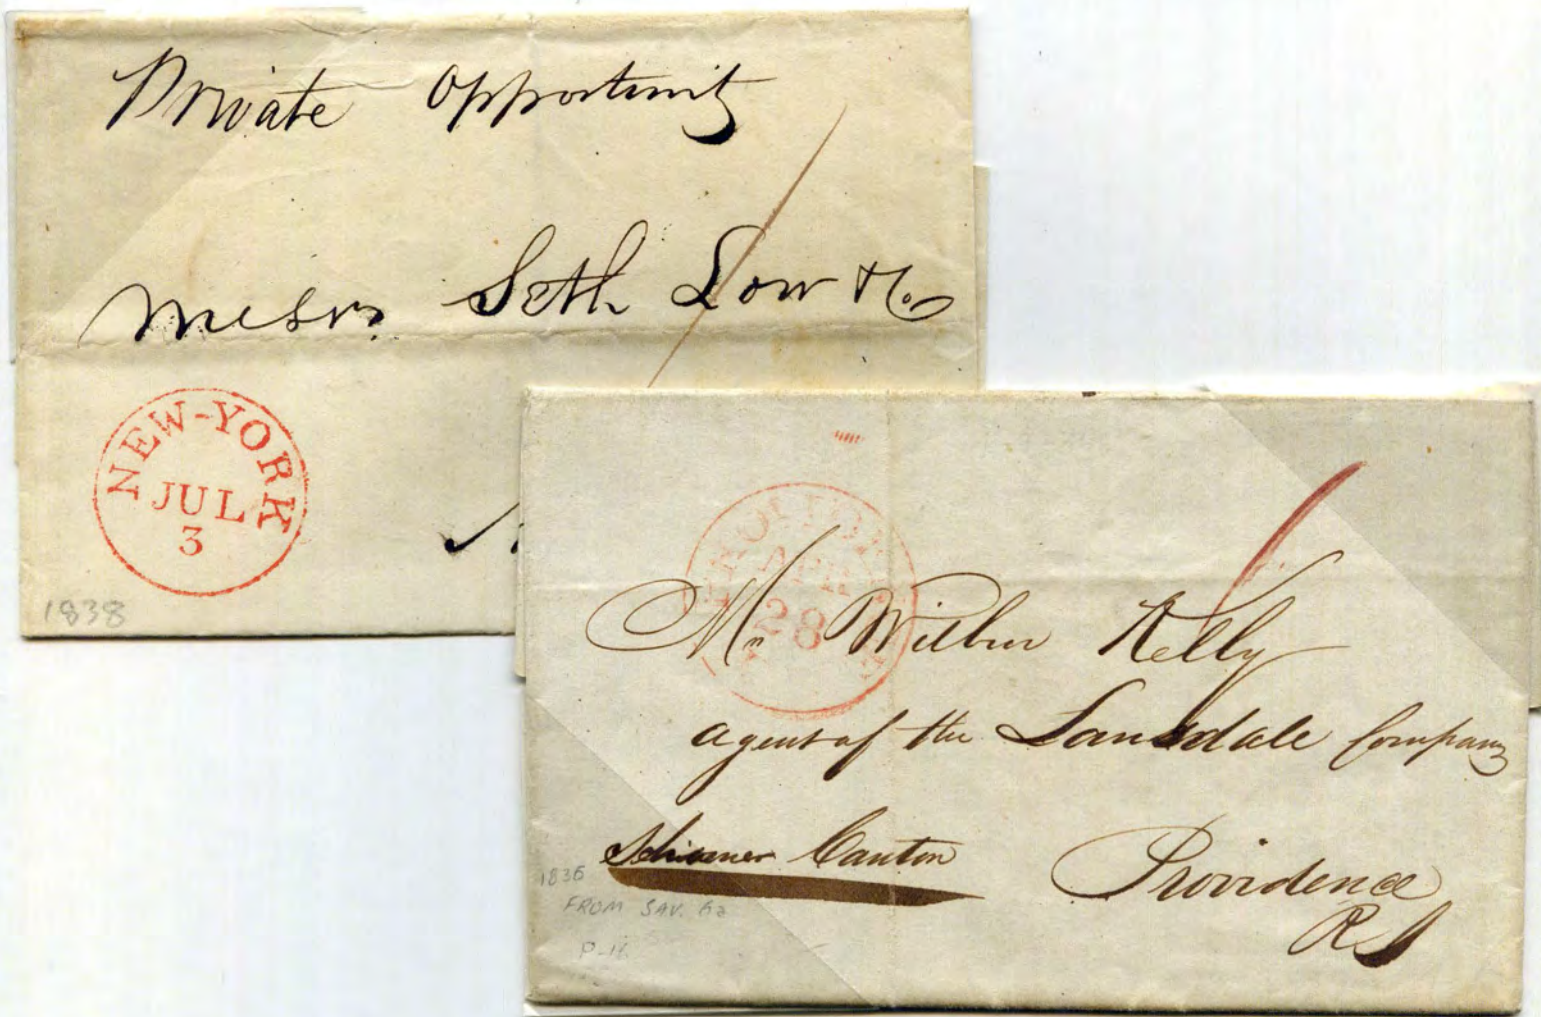 Private Opportunity
Messrs Seth Low & Co.
NEW-YORK
JUL
3
1838
APR
28
Mr Wilbur Kelly
agent of the Lonsdale Company
Schooner Canton
Providence
R I
1836
FROM SAV. Ga
P-16